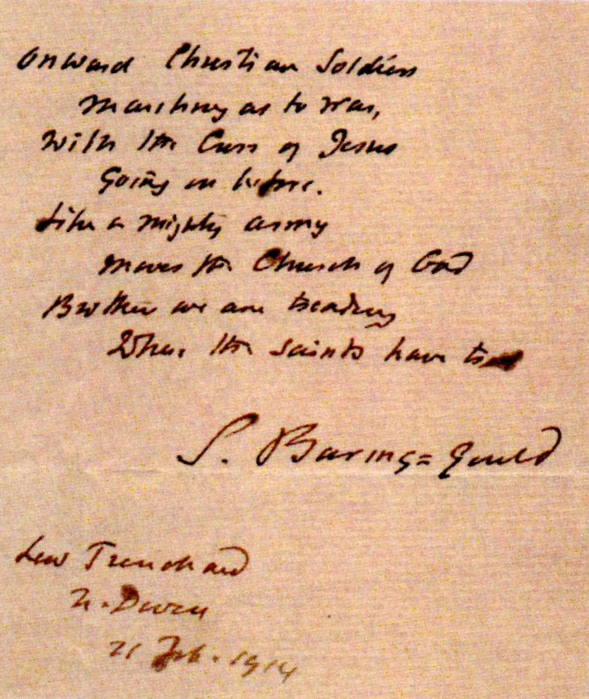 Onward Christian Soldiers
Marching as to war,
With the Cross of Jesus
Going on before.
Like a mighty army
Moves the Church of God
Brothers we are treading
Where the Saints have trod
S. Baring=Gould
Lew Trenchard
N. Devon
21 Feb. 1914